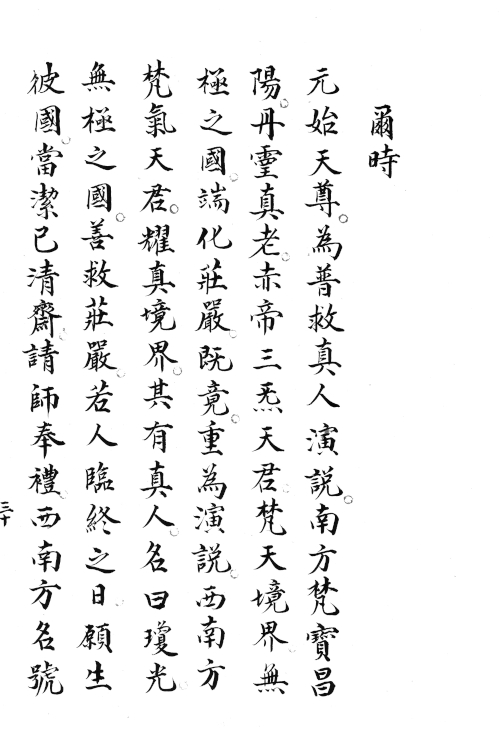 爾時
元始天尊。為普救真人演説。南方梵寶昌
陽。丹霊真老。赤帝三炁天君。梵天境界。無
極之國。端化莊嚴。既竟。重為演説。西南方
梵氣天君。耀真境界。其有真人。名曰瓊光。
無極之國。善救莊嚴。若人臨終之日。願生
彼國。當潔已清齋。請師奉禮。西南方名號
三十